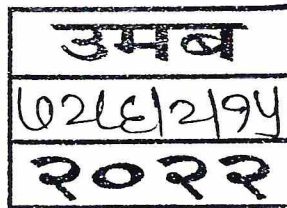 उमब
७२८६|२|१५
२०२२